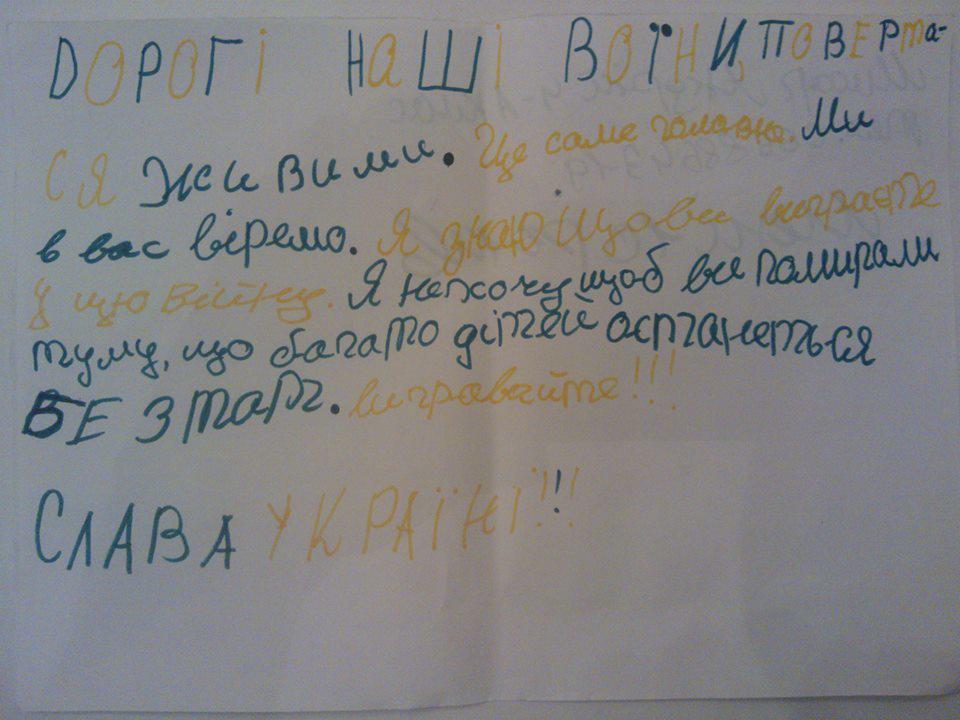 ДОРОГІ НАШІ ВОЇНИ, ПОВЕРТА-
СЯ ЖИВИМИ. Це саме головне. Ми
в вас віремо. Я знаю що ви виграєте
у цю війну. Я нехочу щоб ви памирали
туму, що багато дітей астанеться
БЕЗ ТАТ. вигравайте!!!
СЛАВА УКРАЇНІ!!!